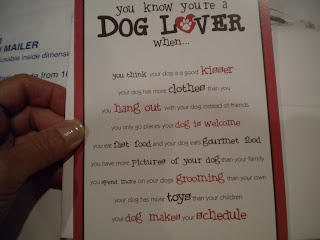 you know you're a
DOG LOVER
when...
you think your dog is a good kisser
your dog has more clothes than you
you hang out with your dog instead of friends
you only go places your dog is welcome
you eat fast food and your dog eats gourmet food
you have more pictures of your dog than your family
you spend more on your dogs grooming than your own
your dog has more toys than your children
your dog makes your schedule
MAILER
usable inside dimension
from 10